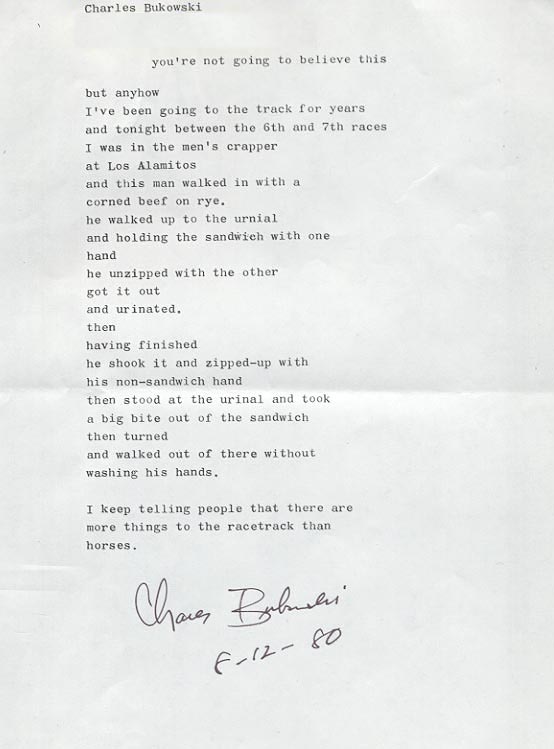 Charles Bukowski
you're not going to believe this
but anyhow
I've been going to the track for years
and tonight between the 6th and 7th races
I was in the men's crapper
at Los Alamitos
and this man walked in with a
corned beef on rye.
he walked up to the urnial
and holding the sandwich with one
hand
he unzipped with the other
got it out
and urinated.
then
having finished
he shook it and zipped-up with
his non-sandwich hand
then stood at the urinal and took
a big bite out of the sandwich
then turned
and walked out of there without
washing his hands.
I keep telling people that there are
more things to the racetrack than
horses.
Charles Bukowski
8-12-80